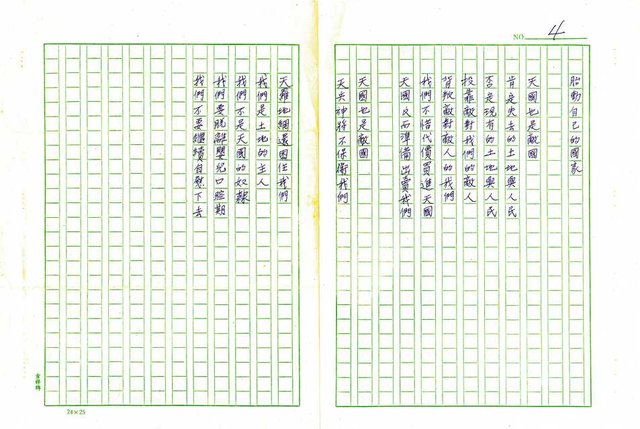 NO. 4
胎動自己的國家
天國也是敵國
肯定失去的土地與人民
否定現有的土地與人民
投靠敵對我們的敵人
背叛敵對敵人的我們
我們不惜代價買進天國
天國反而準備出賣我們
天國也是敵國
天兵神將不保衛我們
天羅地網還困住我們
我們是土地的主人
我們不是天國的奴隸
我們要脫離嬰兒口腔期
我們不要繼續自慰下去
24×25